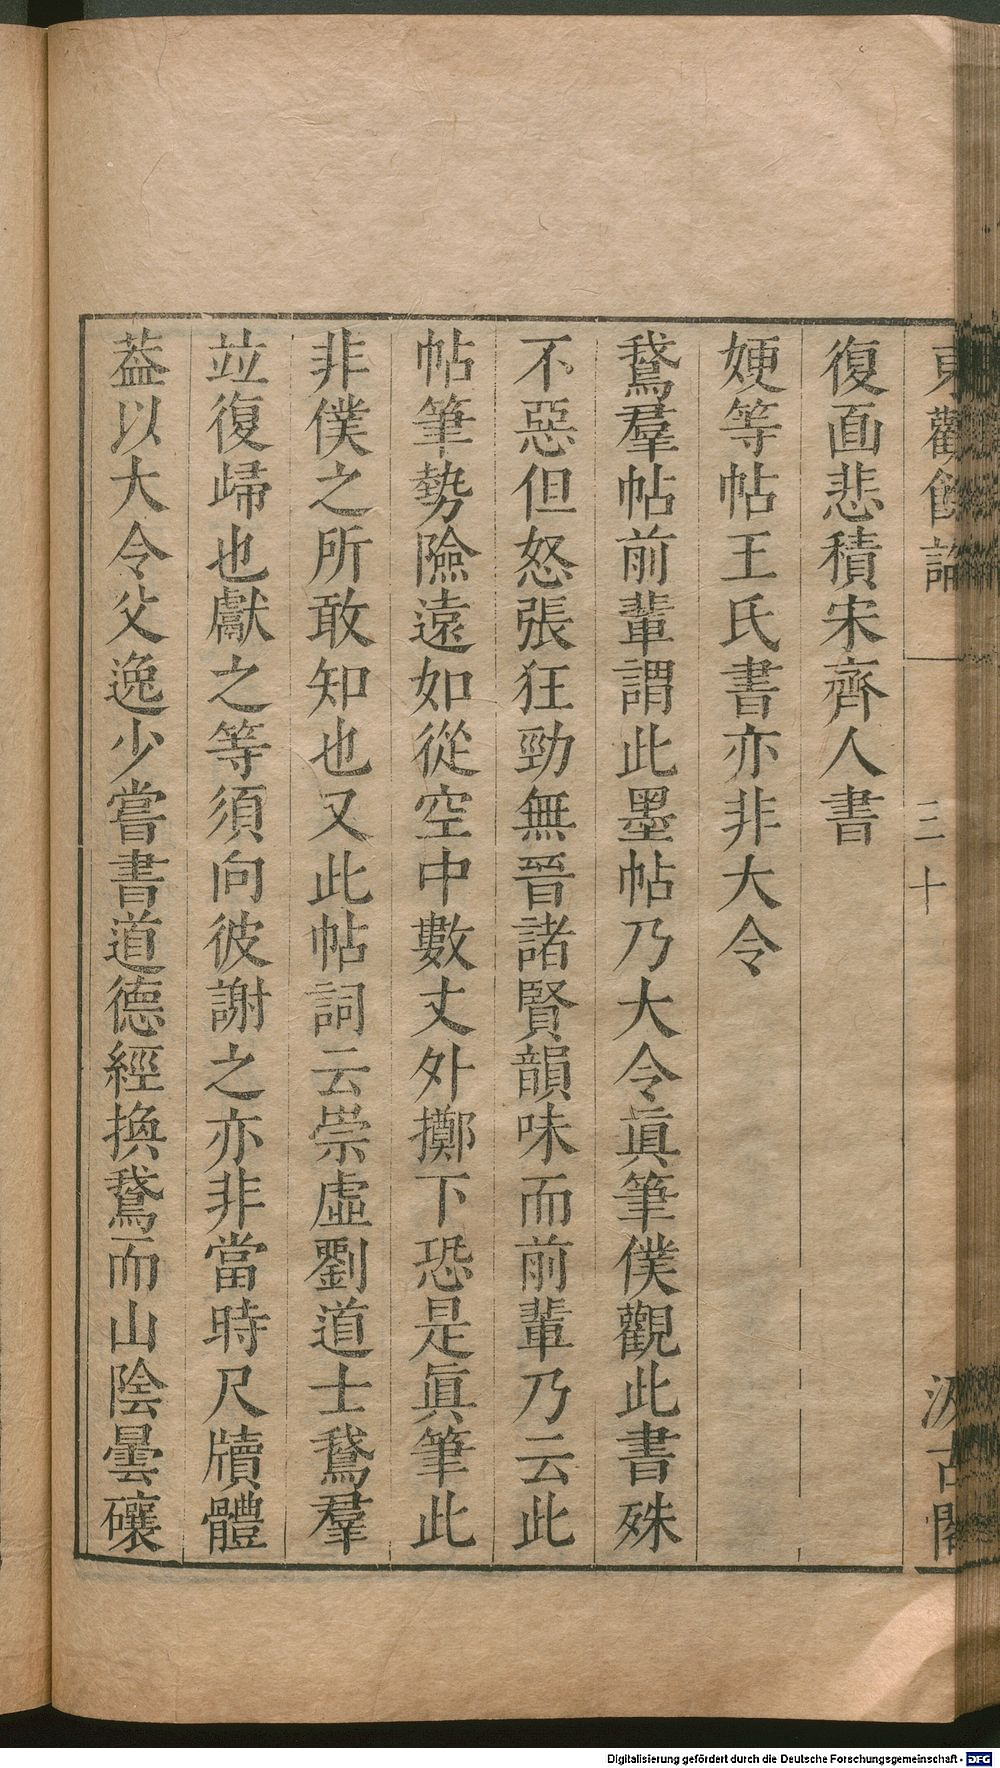 東觀餘論
三十
汲古閣
復面悲積宋齊人書
㛹等帖王氏書亦非大令
鵞羣帖前輩謂此墨帖乃大令眞筆僕觀此書殊
不惡但怒張狂勁無晉諸賢韻味而前輩乃云此
帖筆勢險遠如從空中數丈外擲下恐是眞筆此
非僕之所敢知也又此帖詞云崇虛劉道士鵞羣
竝復歸也獻之等須向彼謝之亦非當時尺牘體
葢以大令父逸少嘗書道德經換鵞而山陰曇𥗝
Digitalisierung gefördert durch die Deutsche Forschungsgemeinschaft - DFG